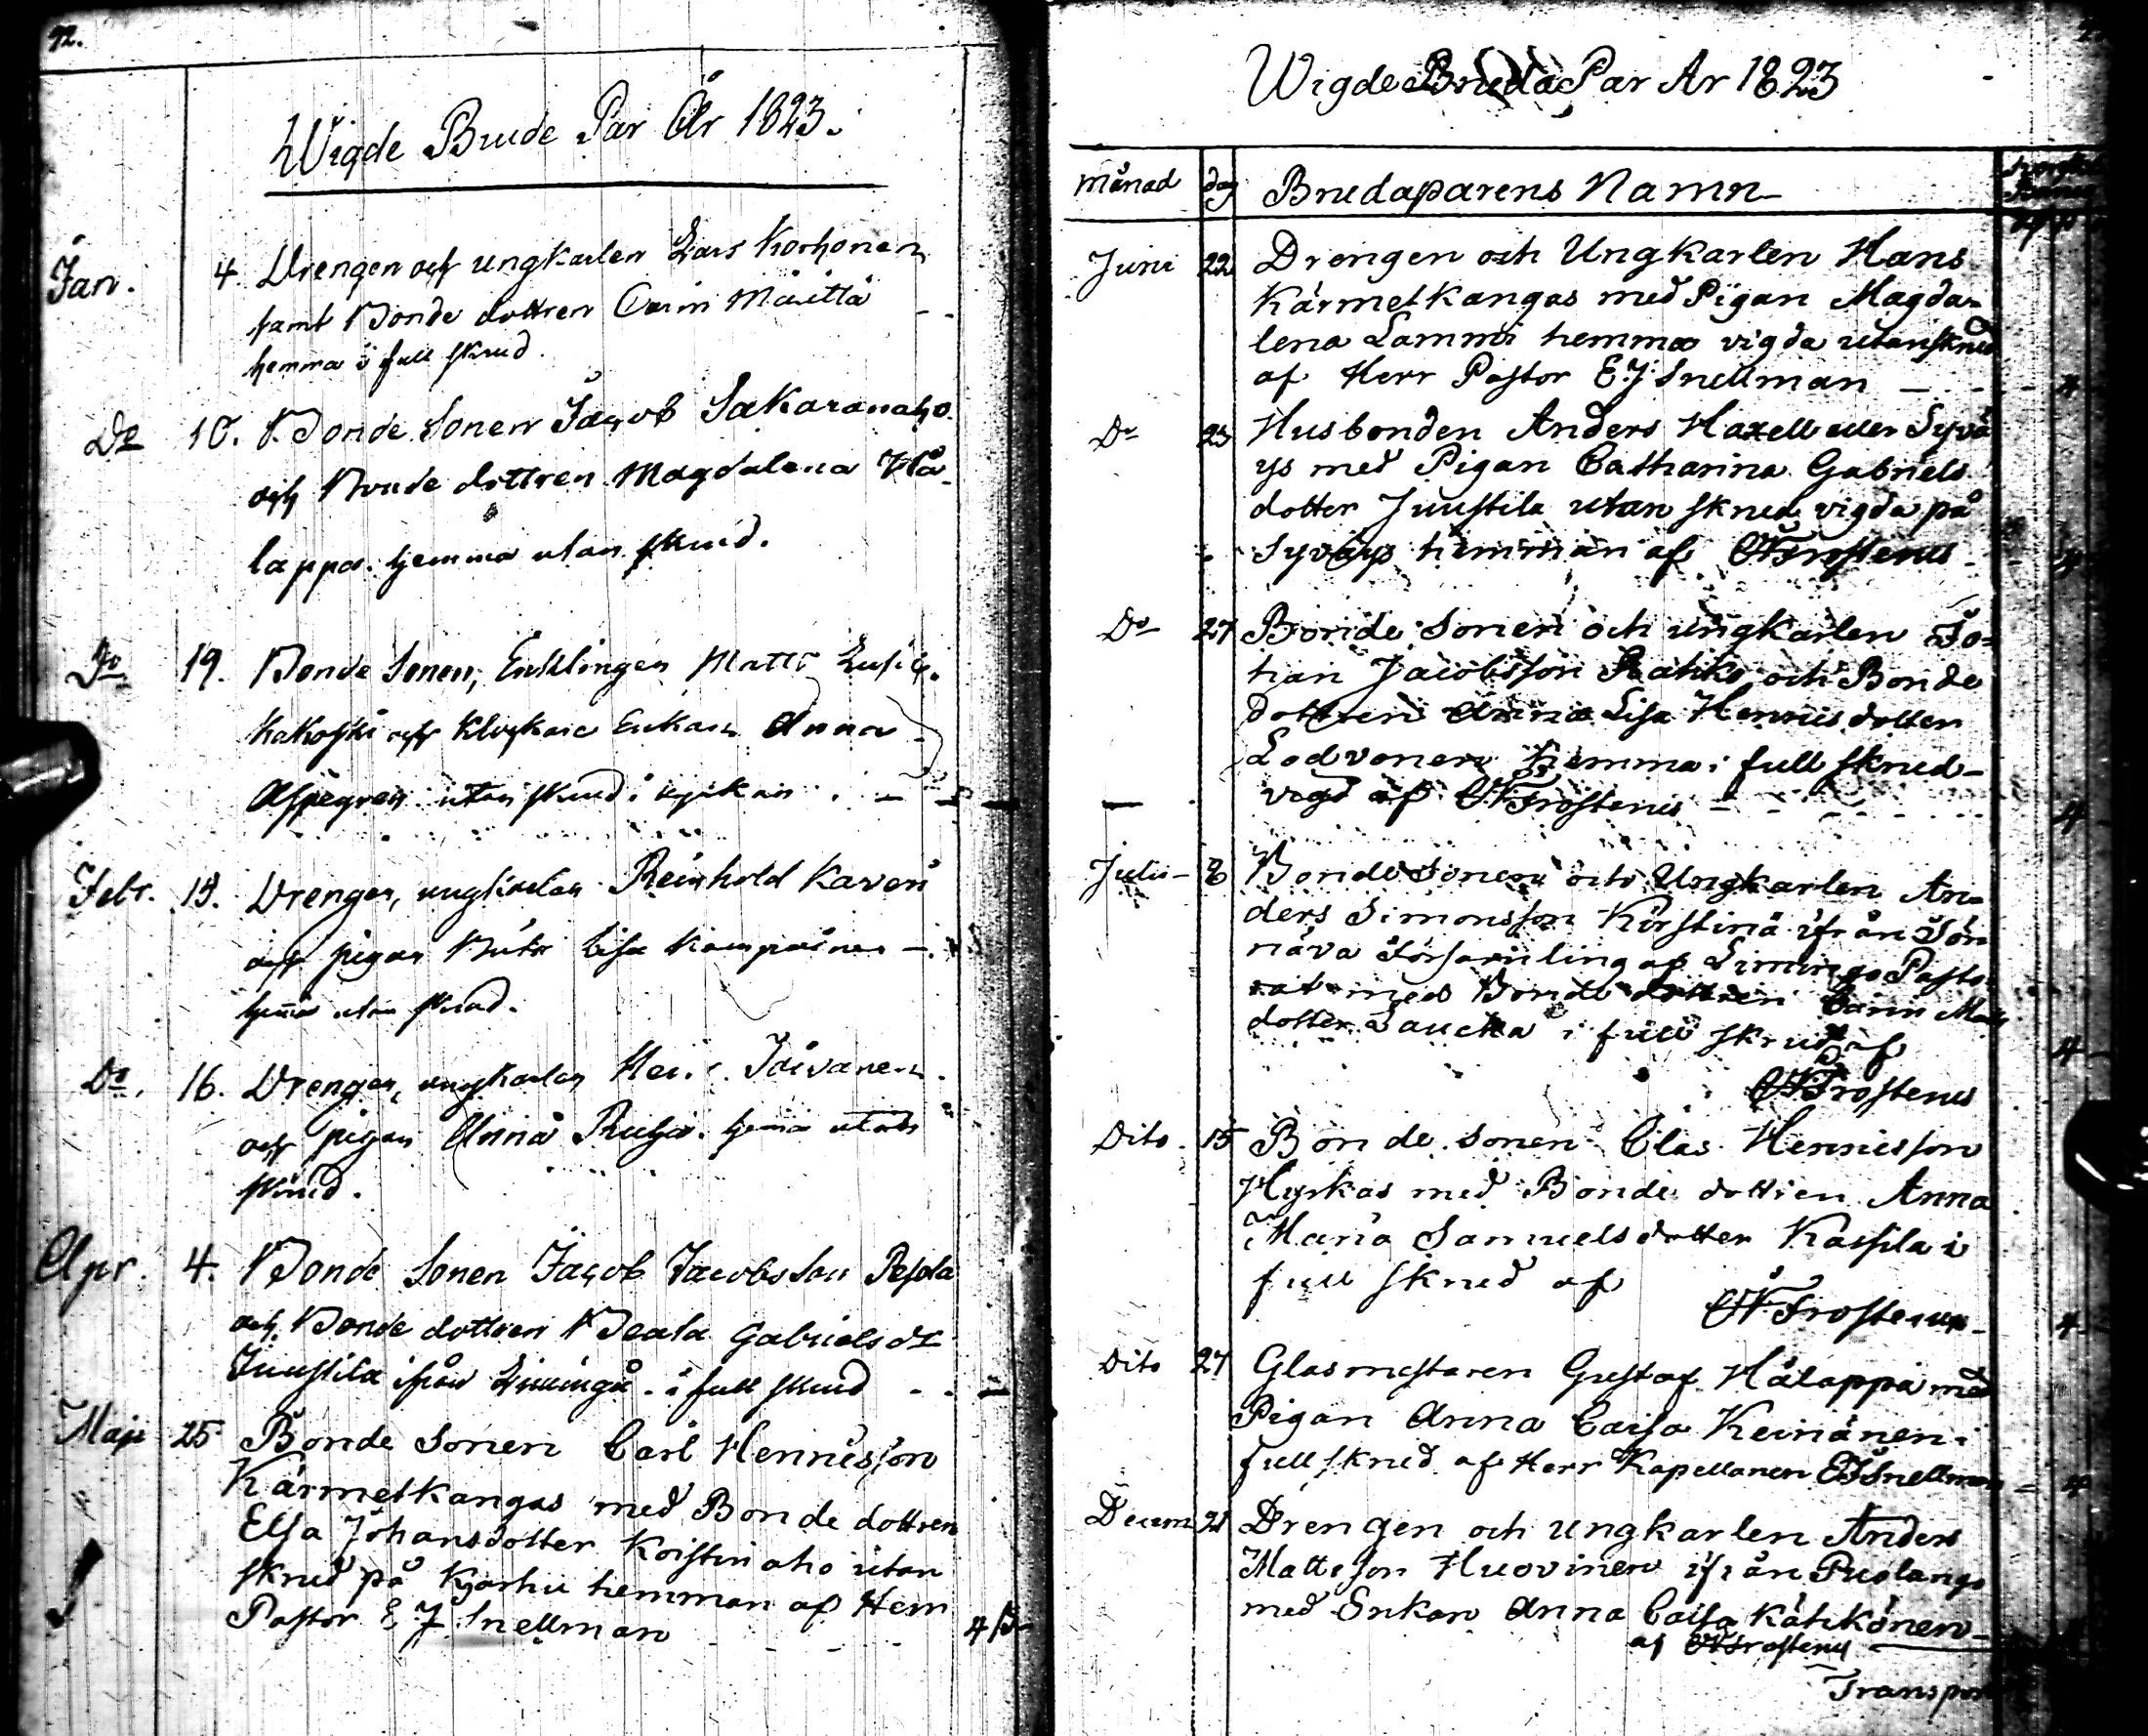 92.
Wigde Brude Par År 1823.
Jan. 4. Drengen och ungkarlen Lars Korhonen
samt Bonde dottren Carin Määttä
hemma i full skrud.
Do 10. Bonde Sonen Jacob Sakaranaho
och Bonde dottren Magdalena Hå-
lappa. hemma utan skrud.
Do 19. Bonde Sonen, Enklingen Matts
och Klockare Enkan Anna
Aspegren utan skrud i kyrkan.
Febr. Drengen, ungkarlen Reinhold Kaveri
och pigan Brita Lisa
hema utan skrud.
Do. 16. Drengen, ungkarlen Henr. Joivanen
och pigan Anna hema utan
skrud.
Apr. 4. Bonde Sonen Jacob Jacobsson Pesola
och Bonde dottren Beata Gabrielsdr
Juustila ifrån Limingå. i full skrud
Maji 25 Bonde Sonen Carl Hennisson
Kärmetkangas med Bonde dottren
Elsa Johansdotter Koistin aho utan
skrud på Karhu hemman af Herr
Pastor E J Snellman
Wigde Bruda Par Ar 1823
Månad dag Brudaparens Namn
Juni 22 Drengen och Ungkarlen Hans
Kärmetkangas med Pigan Magda-
lena Lammi hemma vigda utan skrud
af Herr Pastor E J Snellman 4
Do 23 Husbonden Anders Haxell eller Syvä
ys med Pigan Catharina Gabriels
dotter Juustila utan skrud vigda på
Syväys hemman af Frostenus 4
Do 27 Bonde Sonen och ungkarlen Jo-
han Jacobsson och Bonde
dottren Anna Lisa Hennis dotter
Lodvonen hemma i full skrud
vigd af Frostenus 4
Julii 8 Bonde Sonen och Ungkarlen An-
ders Simonsson Kirstinä ifrån
näva Församling af Limingo Pasto-
rat med Bonde dottren Carin Mats
dotter i full skrud af 4
Frostenus
Dito 15 Bonde sonen Clas Hennisson
Hyrkas med Bonde dottren Anna
Maria Samuels dotter Kassila i
full skrud af
Frostenus 4
Dito 27 Glasmestaren Gustaf Hålappa med
Pigan Anna Caisa Keinänen i
full skrud af Herr Kapellanen E J Snellman 4
Decem 21 Drengen och Ungkarlen Anders
Mattsson Huovinen ifrån Puolango
med Enkan Anna Caisa Kähkönen
af Frostenus
Transport